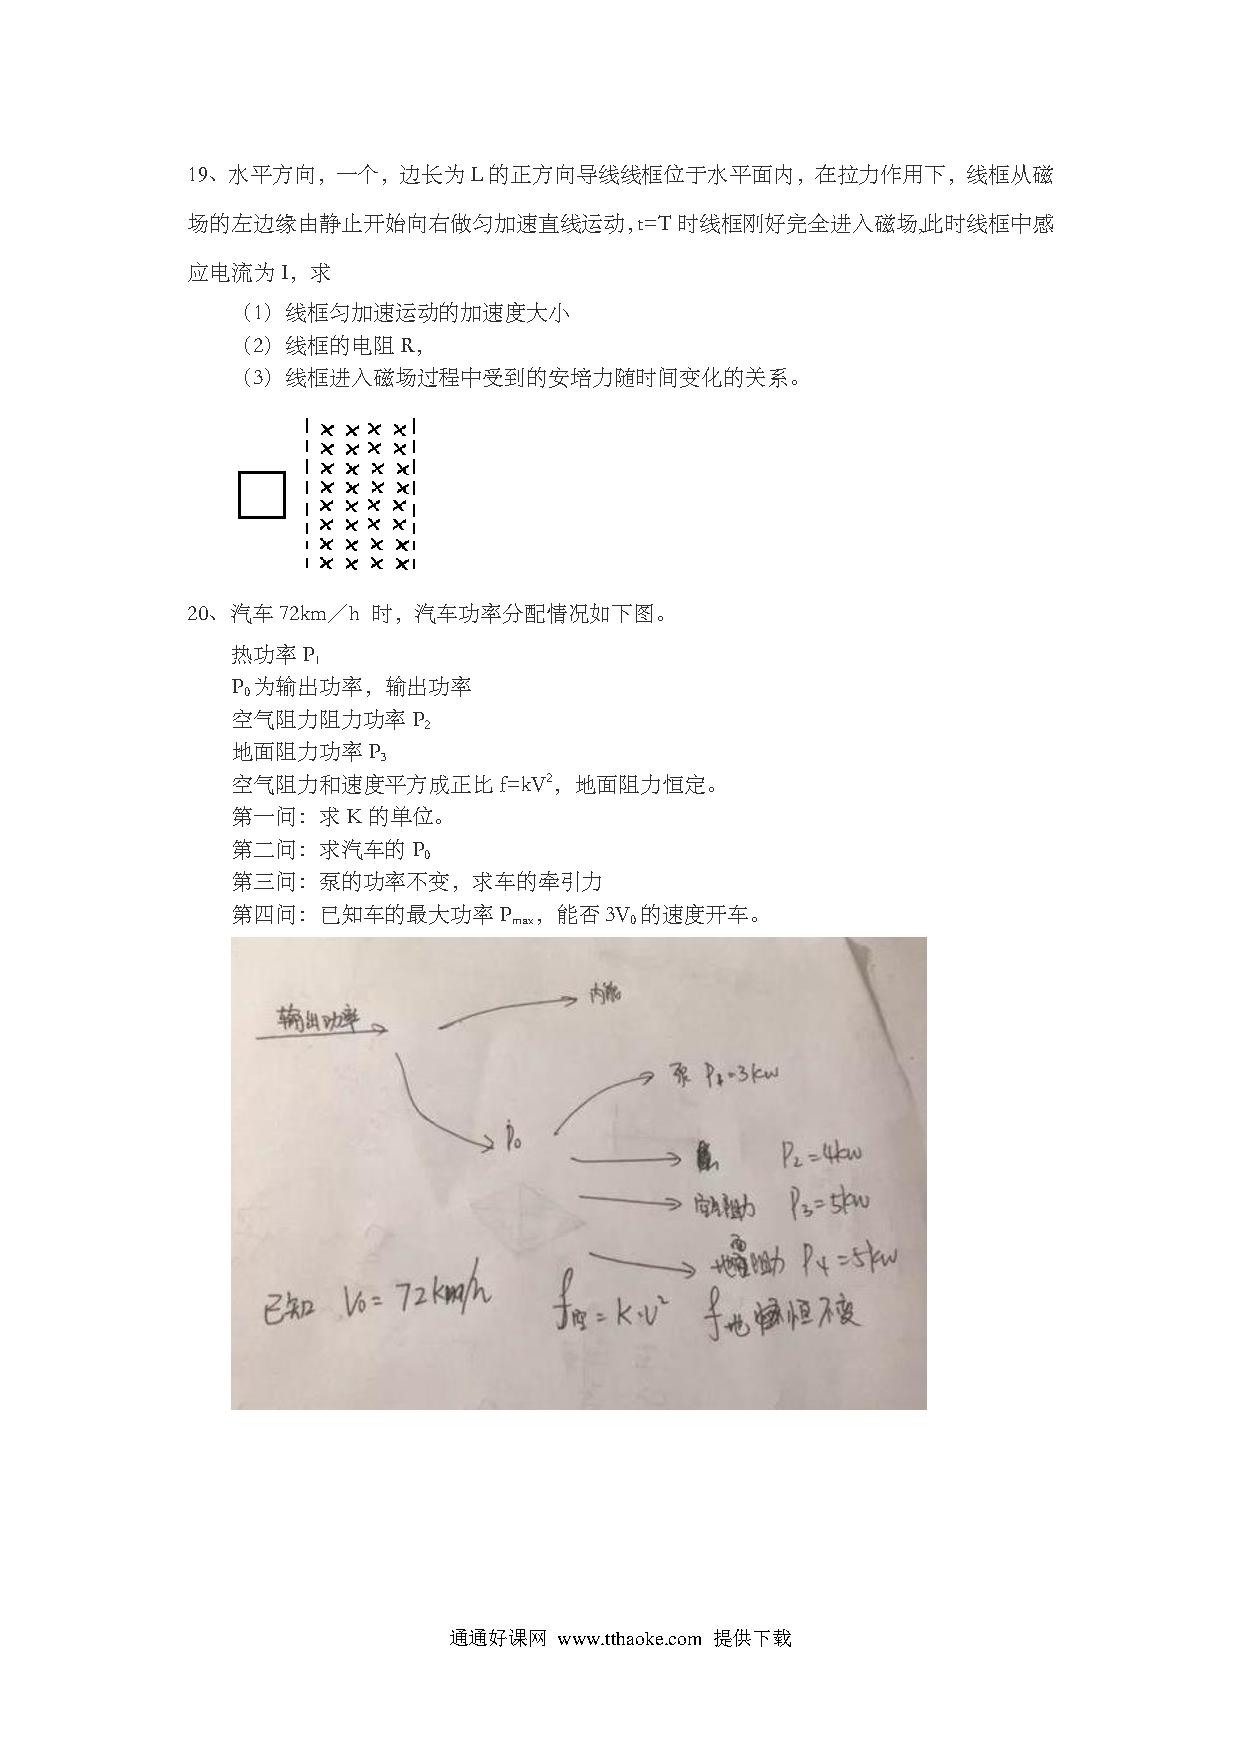 19、水平方向，一个，边长为 L 的正方向导线线框位于水平面内，在拉力作用下，线框从磁
场的左边缘由静止开始向右做匀加速直线运动，t=T 时线框刚好完全进入磁场，此时线框中感
应电流为 I，求
（1）线框匀加速运动的加速度大小
（2）线框的电阻 R，
（3）线框进入磁场过程中受到的安培力随时间变化的关系。
20、汽车 72km／h 时，汽车功率分配情况如下图。
热功率 P1
P0 为输出功率，输出功率
空气阻力阻力功率 P2
地面阻力功率 P3
空气阻力和速度平方成正比 f=kV²，地面阻力恒定。
第一问：求 K 的单位。
第二问：求汽车的 P0
第三问：泵的功率不变，求车的牵引力
第四问：已知车的最大功率 Pmax，能否 3V0 的速度开车。
内能
输出功率
泵 P1=3kw
P0
P2=4kw
空气阻力 P3=5kw
地面阻力 P4=5kw
已知 V0=72km/h f空=K·V² f地 恒不变
通通好课网 www.tthaoke.com 提供下载